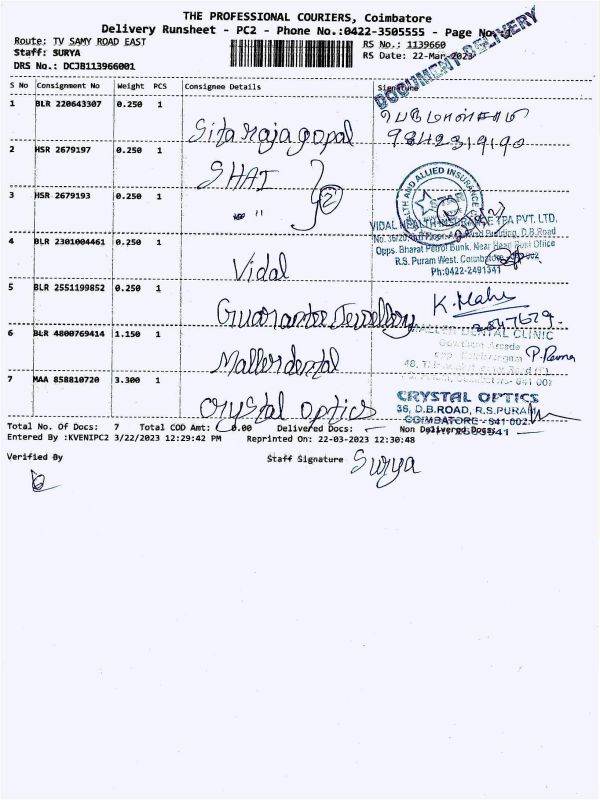 THE PROFESSIONAL COURIERS, Coimbatore
Delivery Runsheet - PC2 - Phone No.:0422-3505555 - Page No.
DOCUMENT DELIVERY
Route: TV SAMY ROAD EAST
RS No.: 1139660
Staff: SURYA
RS Date: 22-Mar-2023
DRS No.: DCJB113966001
S No Consignment No Weight PCS Consignee Details Signature
1 BLR 220643307 0.250 1 Sitarajagopal பெருமாள்சாமி
9842319190
2 HSR 2679197 0.250 1 SHAI
3 HSR 2679193 0.250 1 " 2
HEALTH AND ALLIED INSURANCE
STAR
VIDAL HEALTH INSURANCE TPA PVT. LTD.
4 BLR 2301004461 0.250 1 Vidal
Building, D.B.Road
Opps. Bharat Petrol Bunk, Near Head Post Office
R.S. Puram West. Coimbatore
Ph:0422-2491341
5 BLR 2551199852 0.250 1 Guarantee Jewellery K.Mahe
2547679
6 BLR 4800769414 1.150 1 Mallerdental
MALLER DENTAL CLINIC
Gowtham Arcade
P.Rema
7 MAA 858810720 3.300 1 Crystal optics
CRYSTAL OPTICS
36, D.B.ROAD, R.S.PURAM,
COIMBATORE - 641 002.
Total No. Of Docs: 7 Total COD Amt: 0.00 Delivered Docs: Non Delivered Docs:
Entered By :KVENIPC2 3/22/2023 12:29:42 PM Reprinted On: 22-03-2023 12:30:48
Verified By Staff Signature Surya